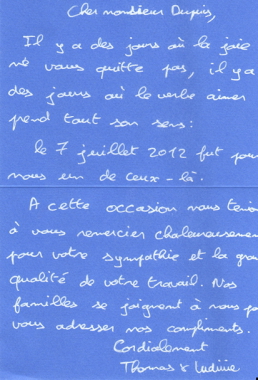 Cher monsieur Dupuis,
Il y a des jours où la joie
ne vous quitte pas, il y a
des jours où le verbe aimer
prend tout son sens :
le 7 juillet 2012 fut pour
nous un de ceux-là.
A cette occasion nous tenions
à vous remercier chaleureusement
pour votre sympathie et la grande
qualité de votre travail. Nos
familles se joignent à nous pour
vous adresser nos compliments.
Cordialement
Thomas &